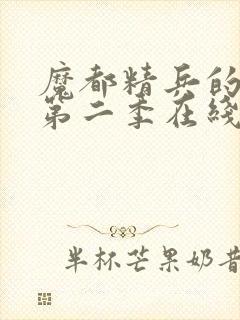 魔都精兵的
第二季在线
半杯芒果奶昔